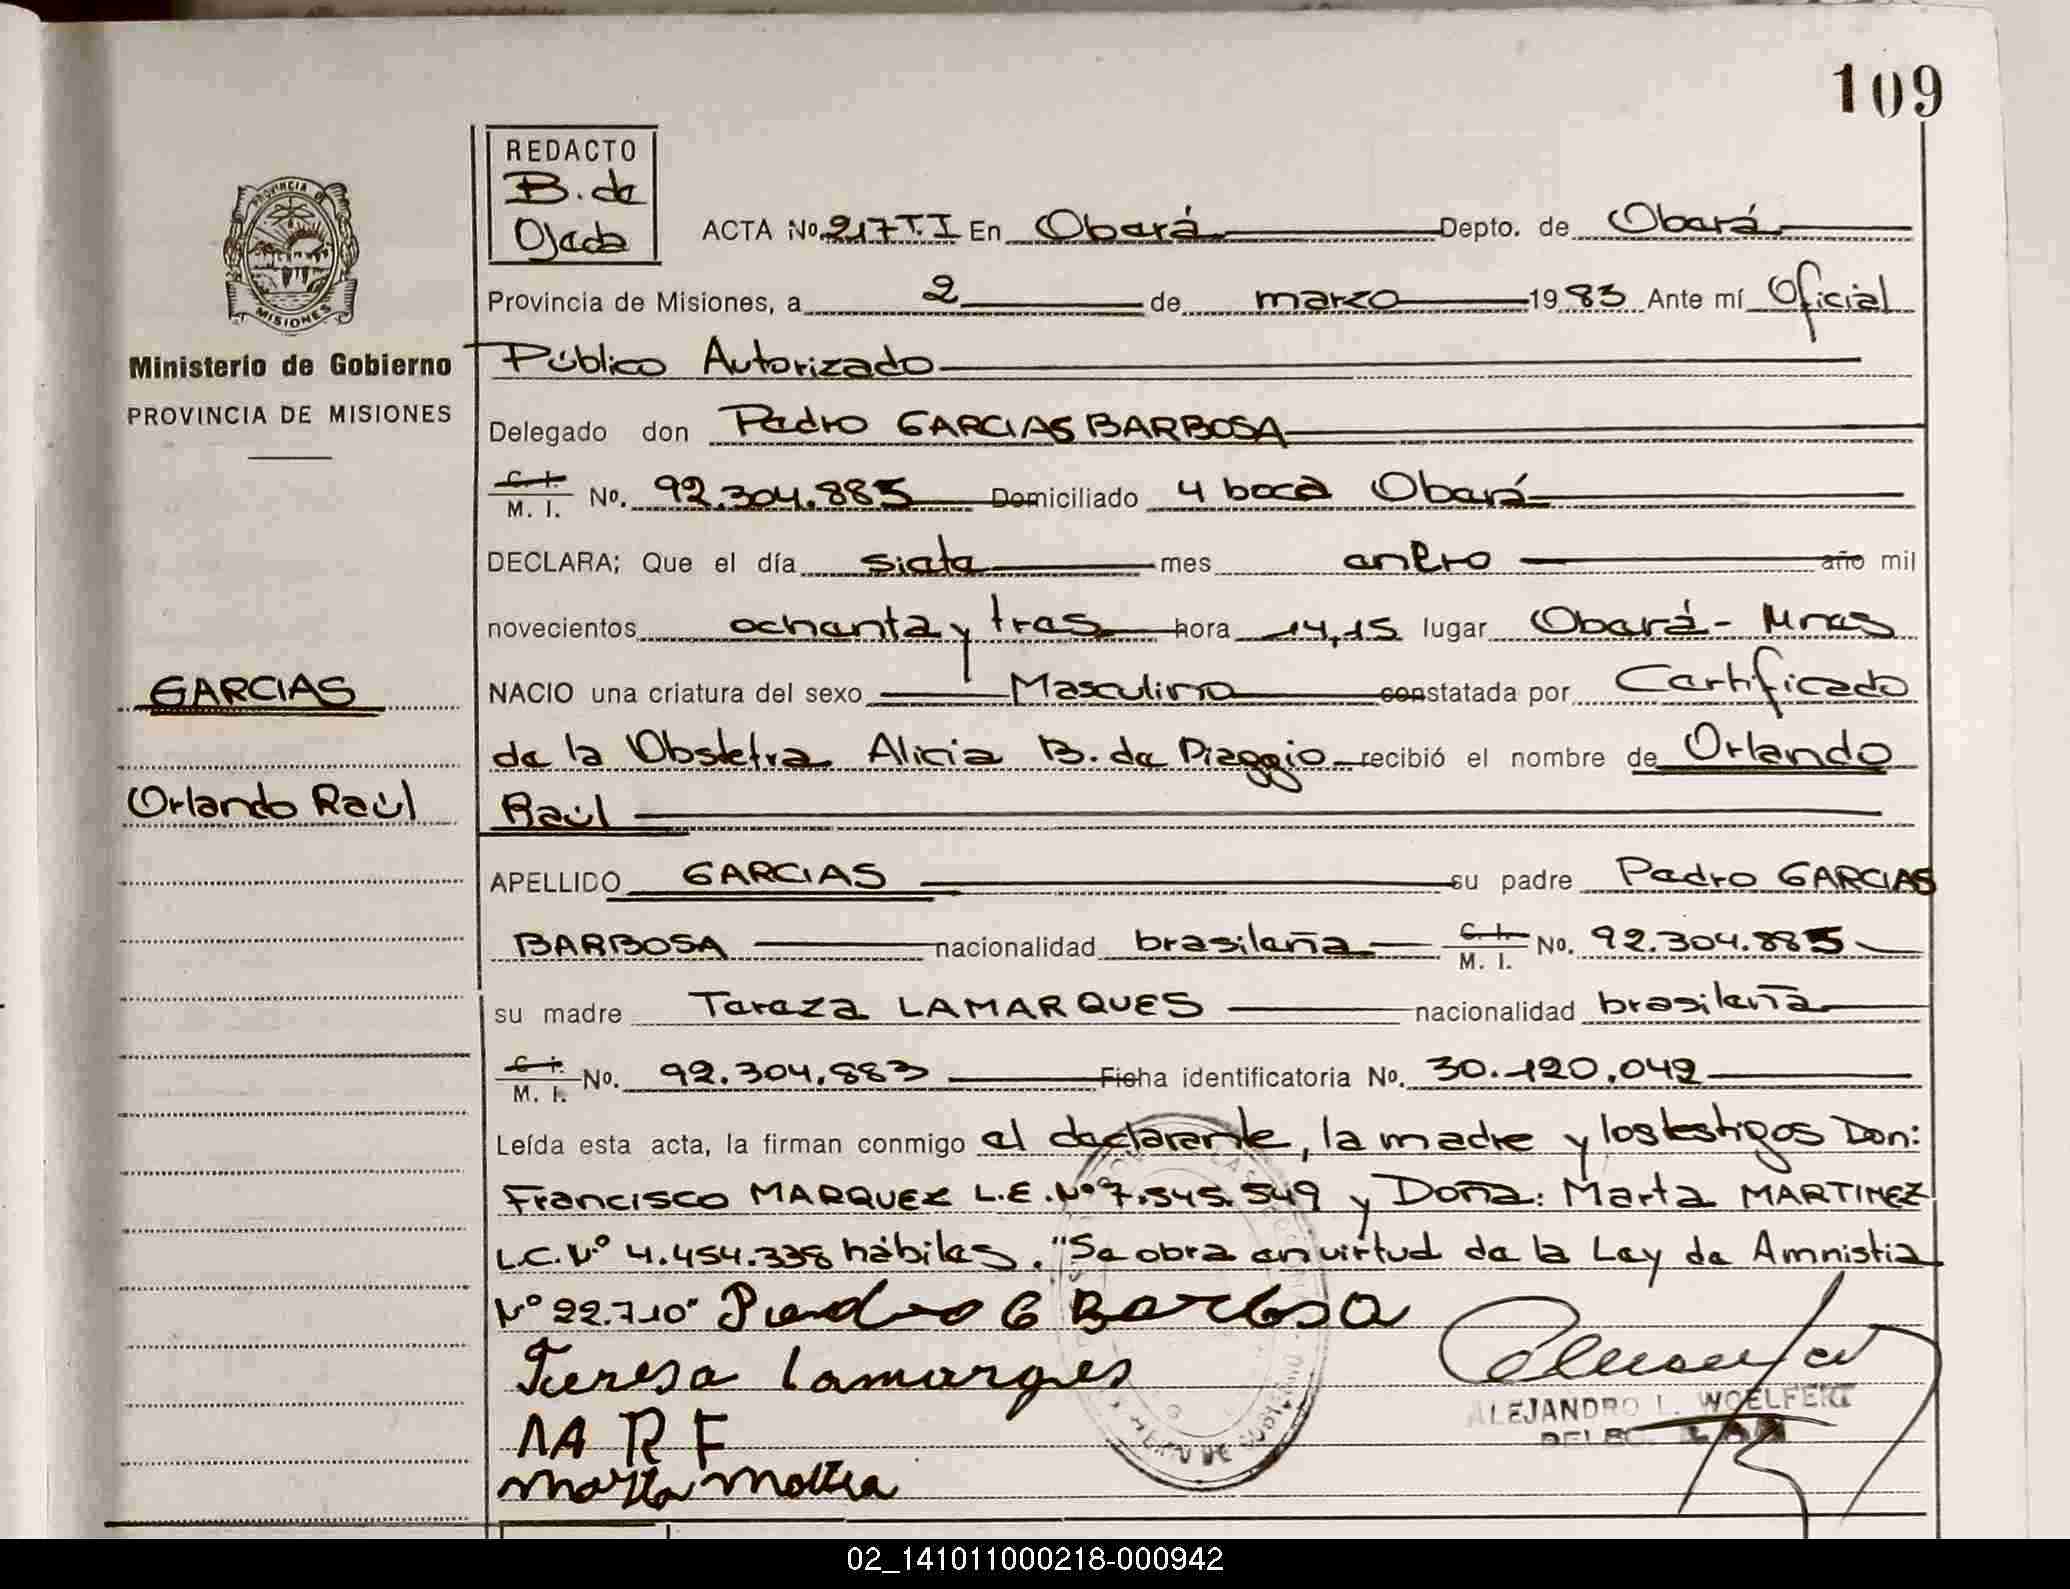 109
REDACTO
B. de
Ojeda
ACTA No. 217 T. I En Oberá Depto. de Oberá
Provincia de Misiones, a 2 de marzo 1983 Ante mí Oficial
Público Autorizado
Delegado don Pedro GARCIAS BARBOSA
C. I.
M. I. No. 92.304.885 Domiciliado 4 boca Oberá
DECLARA; Que el día siete mes enero año mil
novecientos ochenta y tres hora 14,15 lugar Oberá - Mnes
NACIO una criatura del sexo Masculino constatada por Certificado
de la Obstetra Alicia B. de Piaggio recibió el nombre de Orlando
Raúl
APELLIDO GARCIAS su padre Pedro GARCIAS
BARBOSA nacionalidad brasileña C. I. M. I. No. 92.304.885
su madre Tereza LAMARQUES nacionalidad brasileña
C. I.
M. I. No. 92.304.883 Ficha identificatoria No. 30.120.042
Leída esta acta, la firman conmigo el declarante, la madre y los testigos Don:
Francisco MARQUEZ L.E. Nº 7.545.549 y Doña: Marta MARTINEZ
L.C. Nº 4.454.338 hábiles. "Se obra en virtud de la Ley de Amnistia
Nº 22.710" Pedro G Barbosa
Teresa lamarques
MARF
ALEJANDRO L. WOELFERT
PROVINCIA DE
MISIONES
Ministerio de Gobierno
PROVINCIA DE MISIONES
GARCIAS
Orlando Raúl
02_141011000218-000942